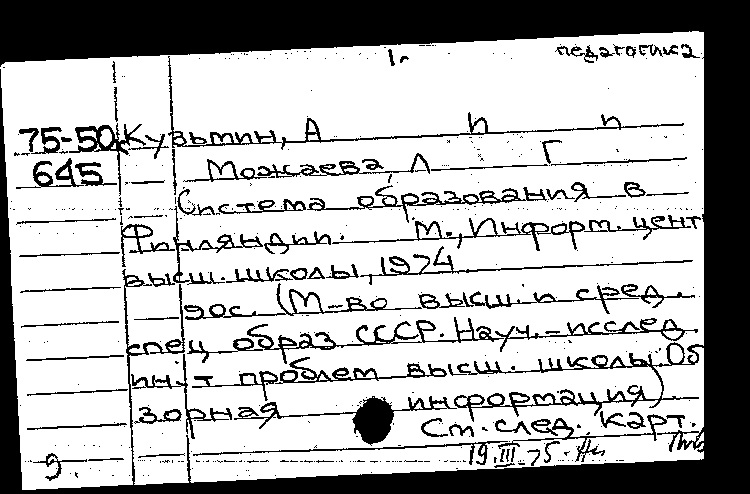 1. педагогика
75-50 Кузьмин, А П п
645 Можаева, Л Г
Система образования в
Финляндии. М., Информ. цент
высш. школы, 1974
90с. (М-во высш. и сред.
спец образ СССР. Науч.-исслед
ин-т проблем высш. школы. Об
зорная информация)
См. след. карт.
9. 19.III.75